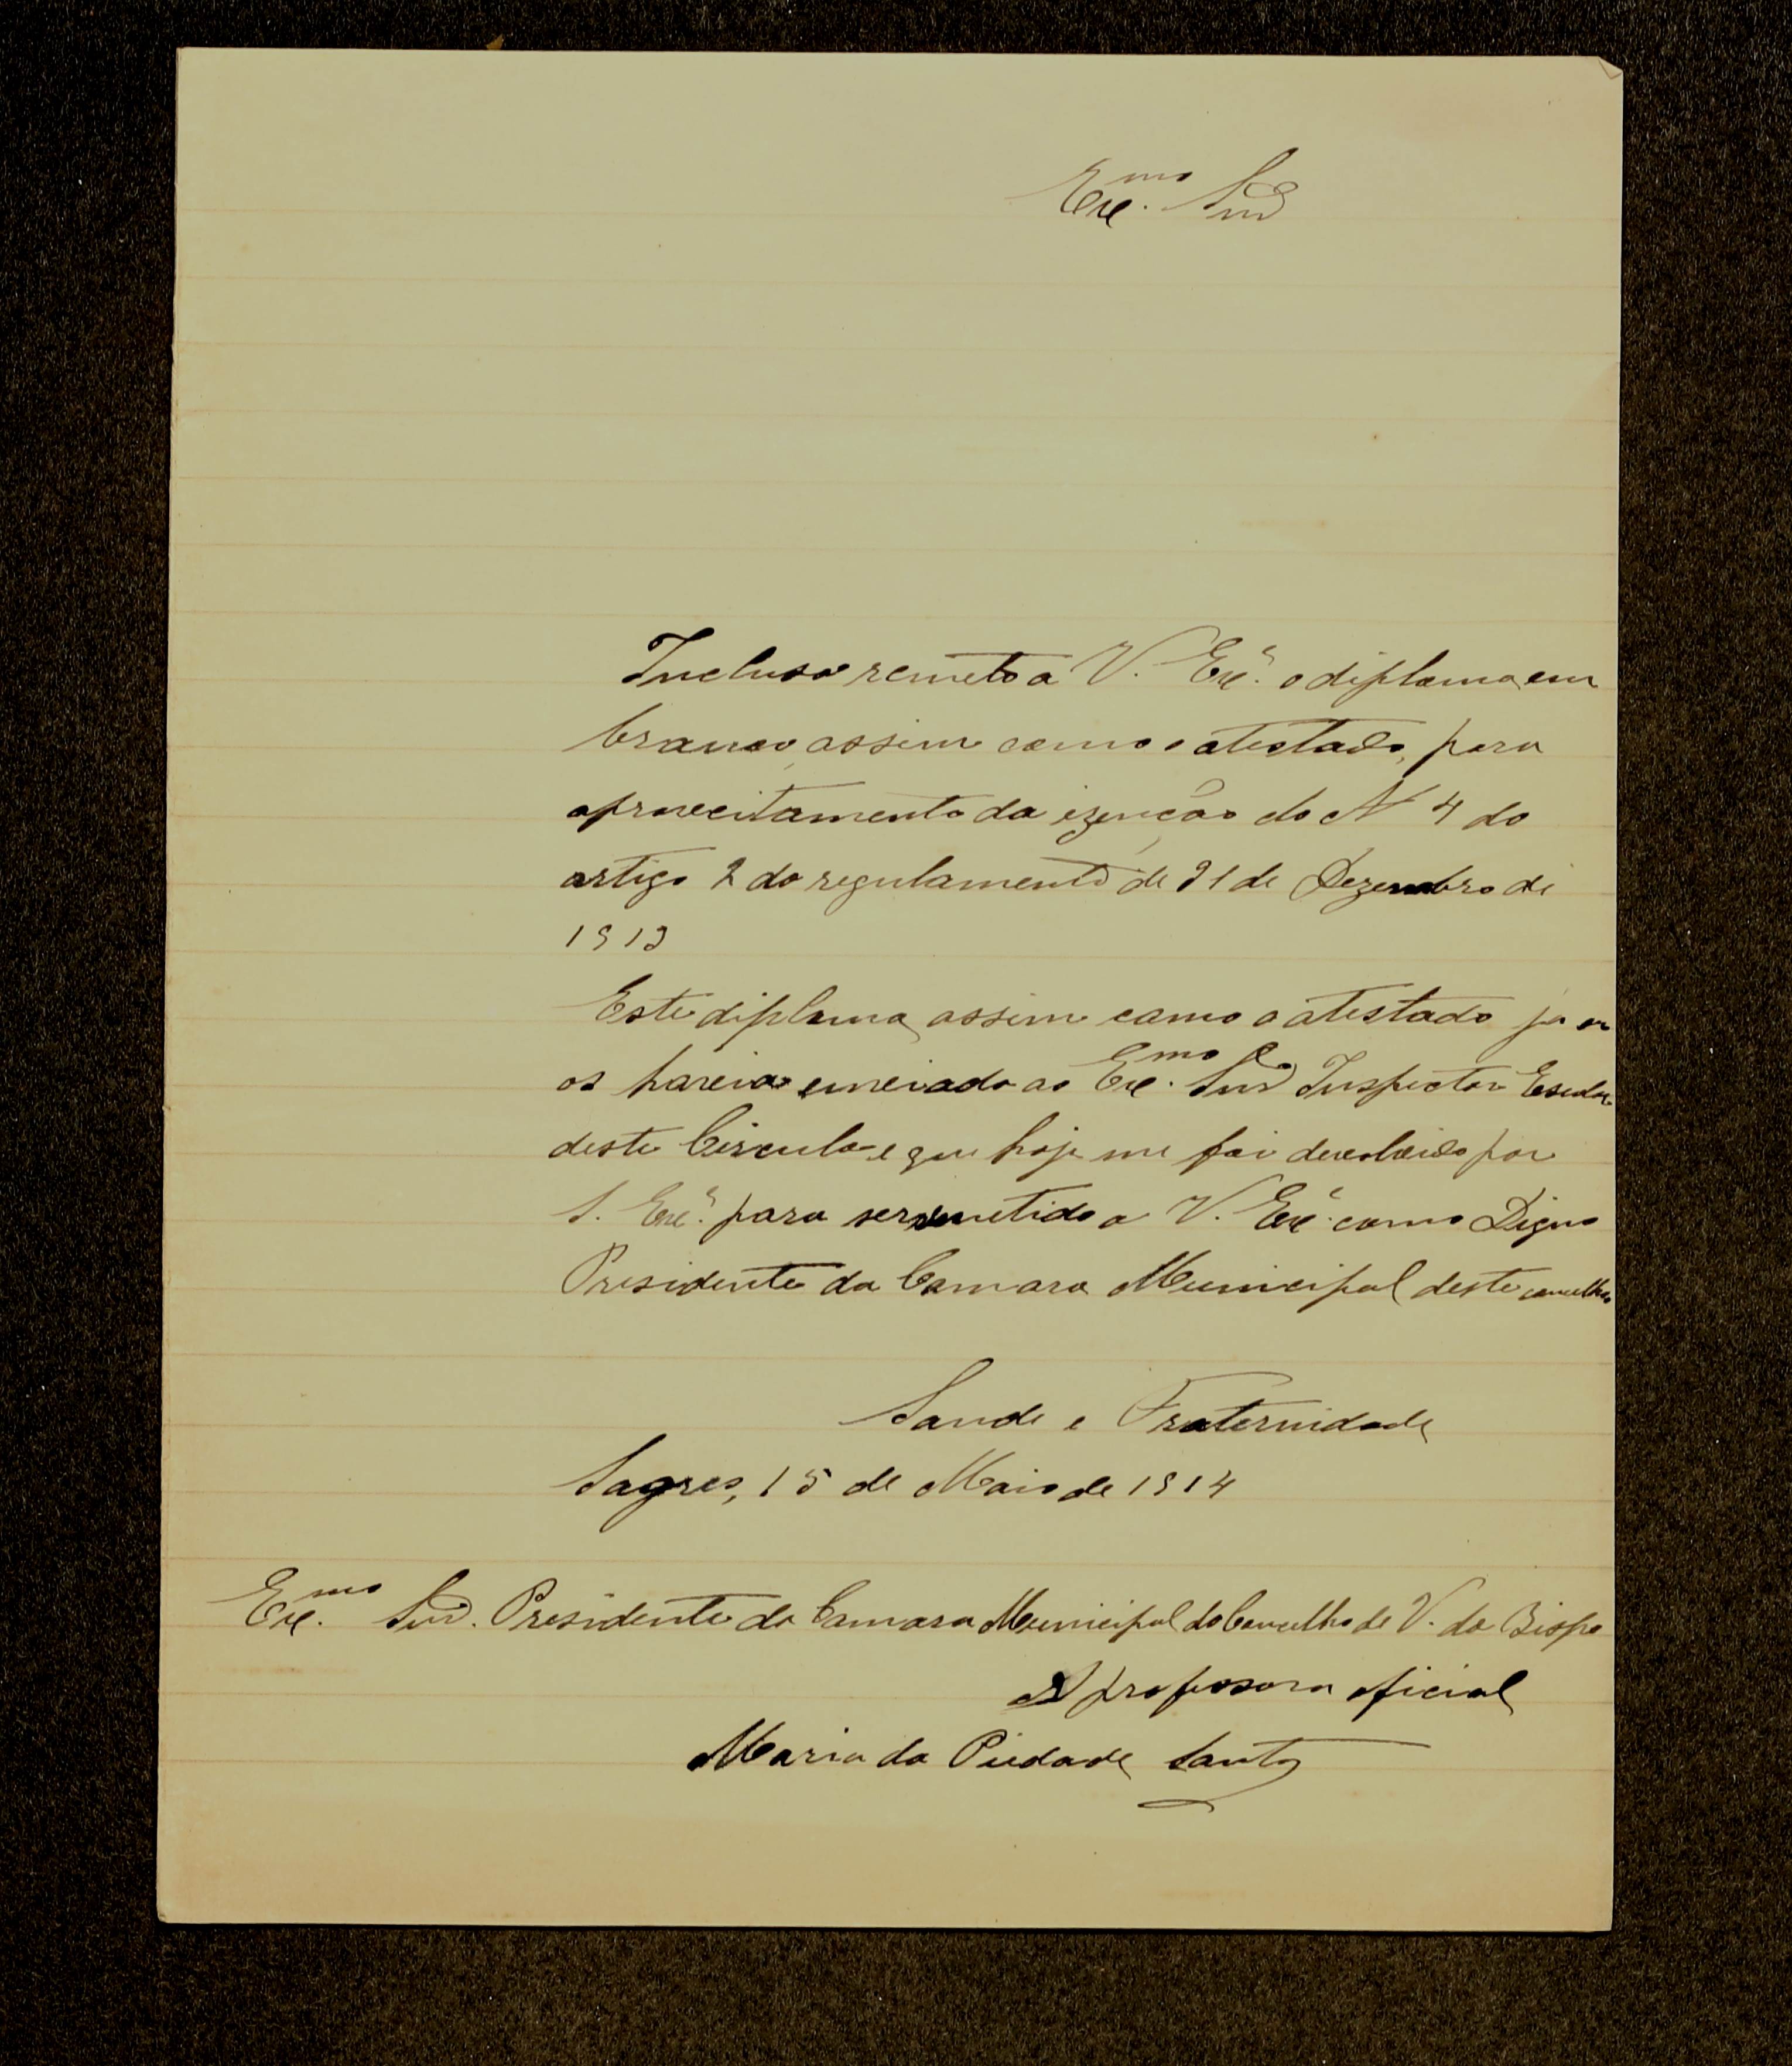 Exc.mo Snr
Incluso remeto a V. Exc.ª o diploma em
branco, assim como o atestado, para
aproveitamento da izenção do N 4 do
artigo 2 do regulamento de 31 de Dezembro de
1913
Este diploma, assim como o atestado ja eu
os havia enviado ao Exc.mo Snr Inspector Escolar
deste Circulo e que hoje me foi devolvido por
S. Exc.ª para ser remetido a V. Exc.ª como Digno
Presidente da Camara Municipal deste concelho
Saude e Fraternidade
Sagres, 15 de Maio de 1914
Exc.mo Snr. Presidente da Camara Municipal do Concelho de V. do Bispo
A professora oficial
Maria da Piedade Santos